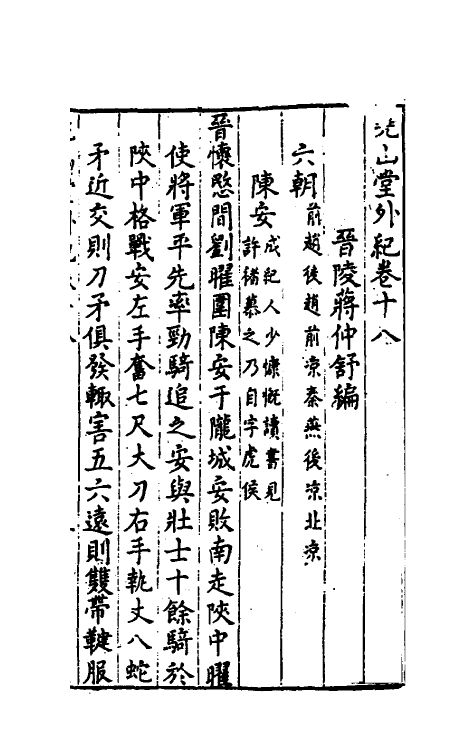 堯山堂外紀卷十八
晉陵蔣仲舒編
六朝前趙後趙前凉秦燕後凉北凉
陳安成紀人少慷慨讀書見許褚慕之乃自字虎侯
晉懷愍間劉曜圍陳安于隴城安敗南走陜中曜
使將軍平先率勁騎追之安與壯士十餘騎於
陜中格戰安左手奮七尺大刀右手執丈八蛇
矛近交則刀矛俱發輙害五六遠則雙帶鞬服